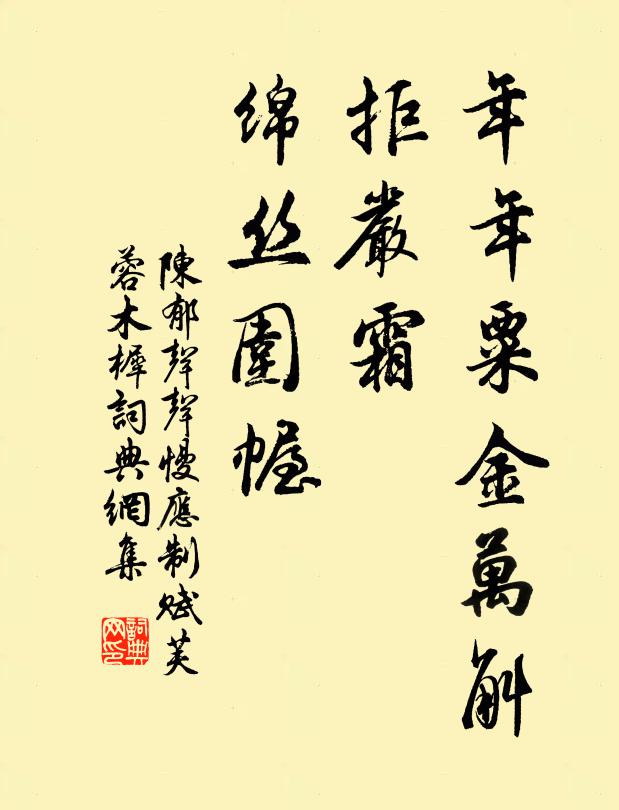 年年粟金萬斛
拒嚴霜
綿丝圍幄
陳郁聲聲慢應制賦芙
蓉木樨詞典網集
詞典网印